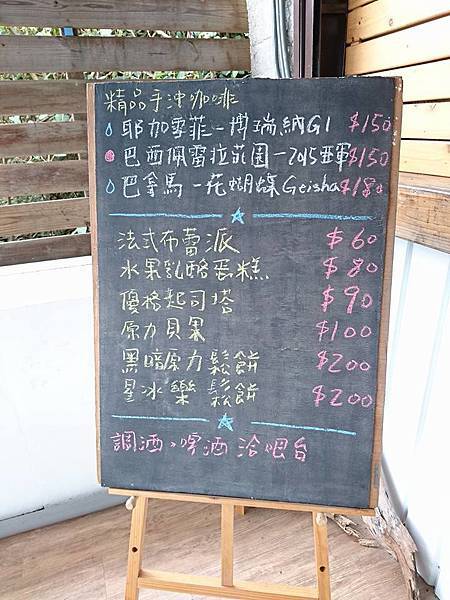 精品手沖咖啡
耶加雪菲-博瑞納G1 $150
巴西佩雷拉莊園-2015亞軍$150
巴拿馬-花蝴蝶Geisha$180
法式布蕾派 $60
水果乳酪蛋糕 $80
優格起司塔 $90
原力貝果 $100
黑暗原力鬆餅 $200
星冰樂鬆餅 $200
調酒、啤酒洽吧台